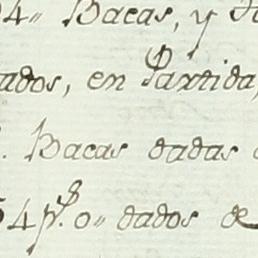 04" Bacas, y
ados, en Partida,
. Bacas dadas
54 p.s 0" dados de